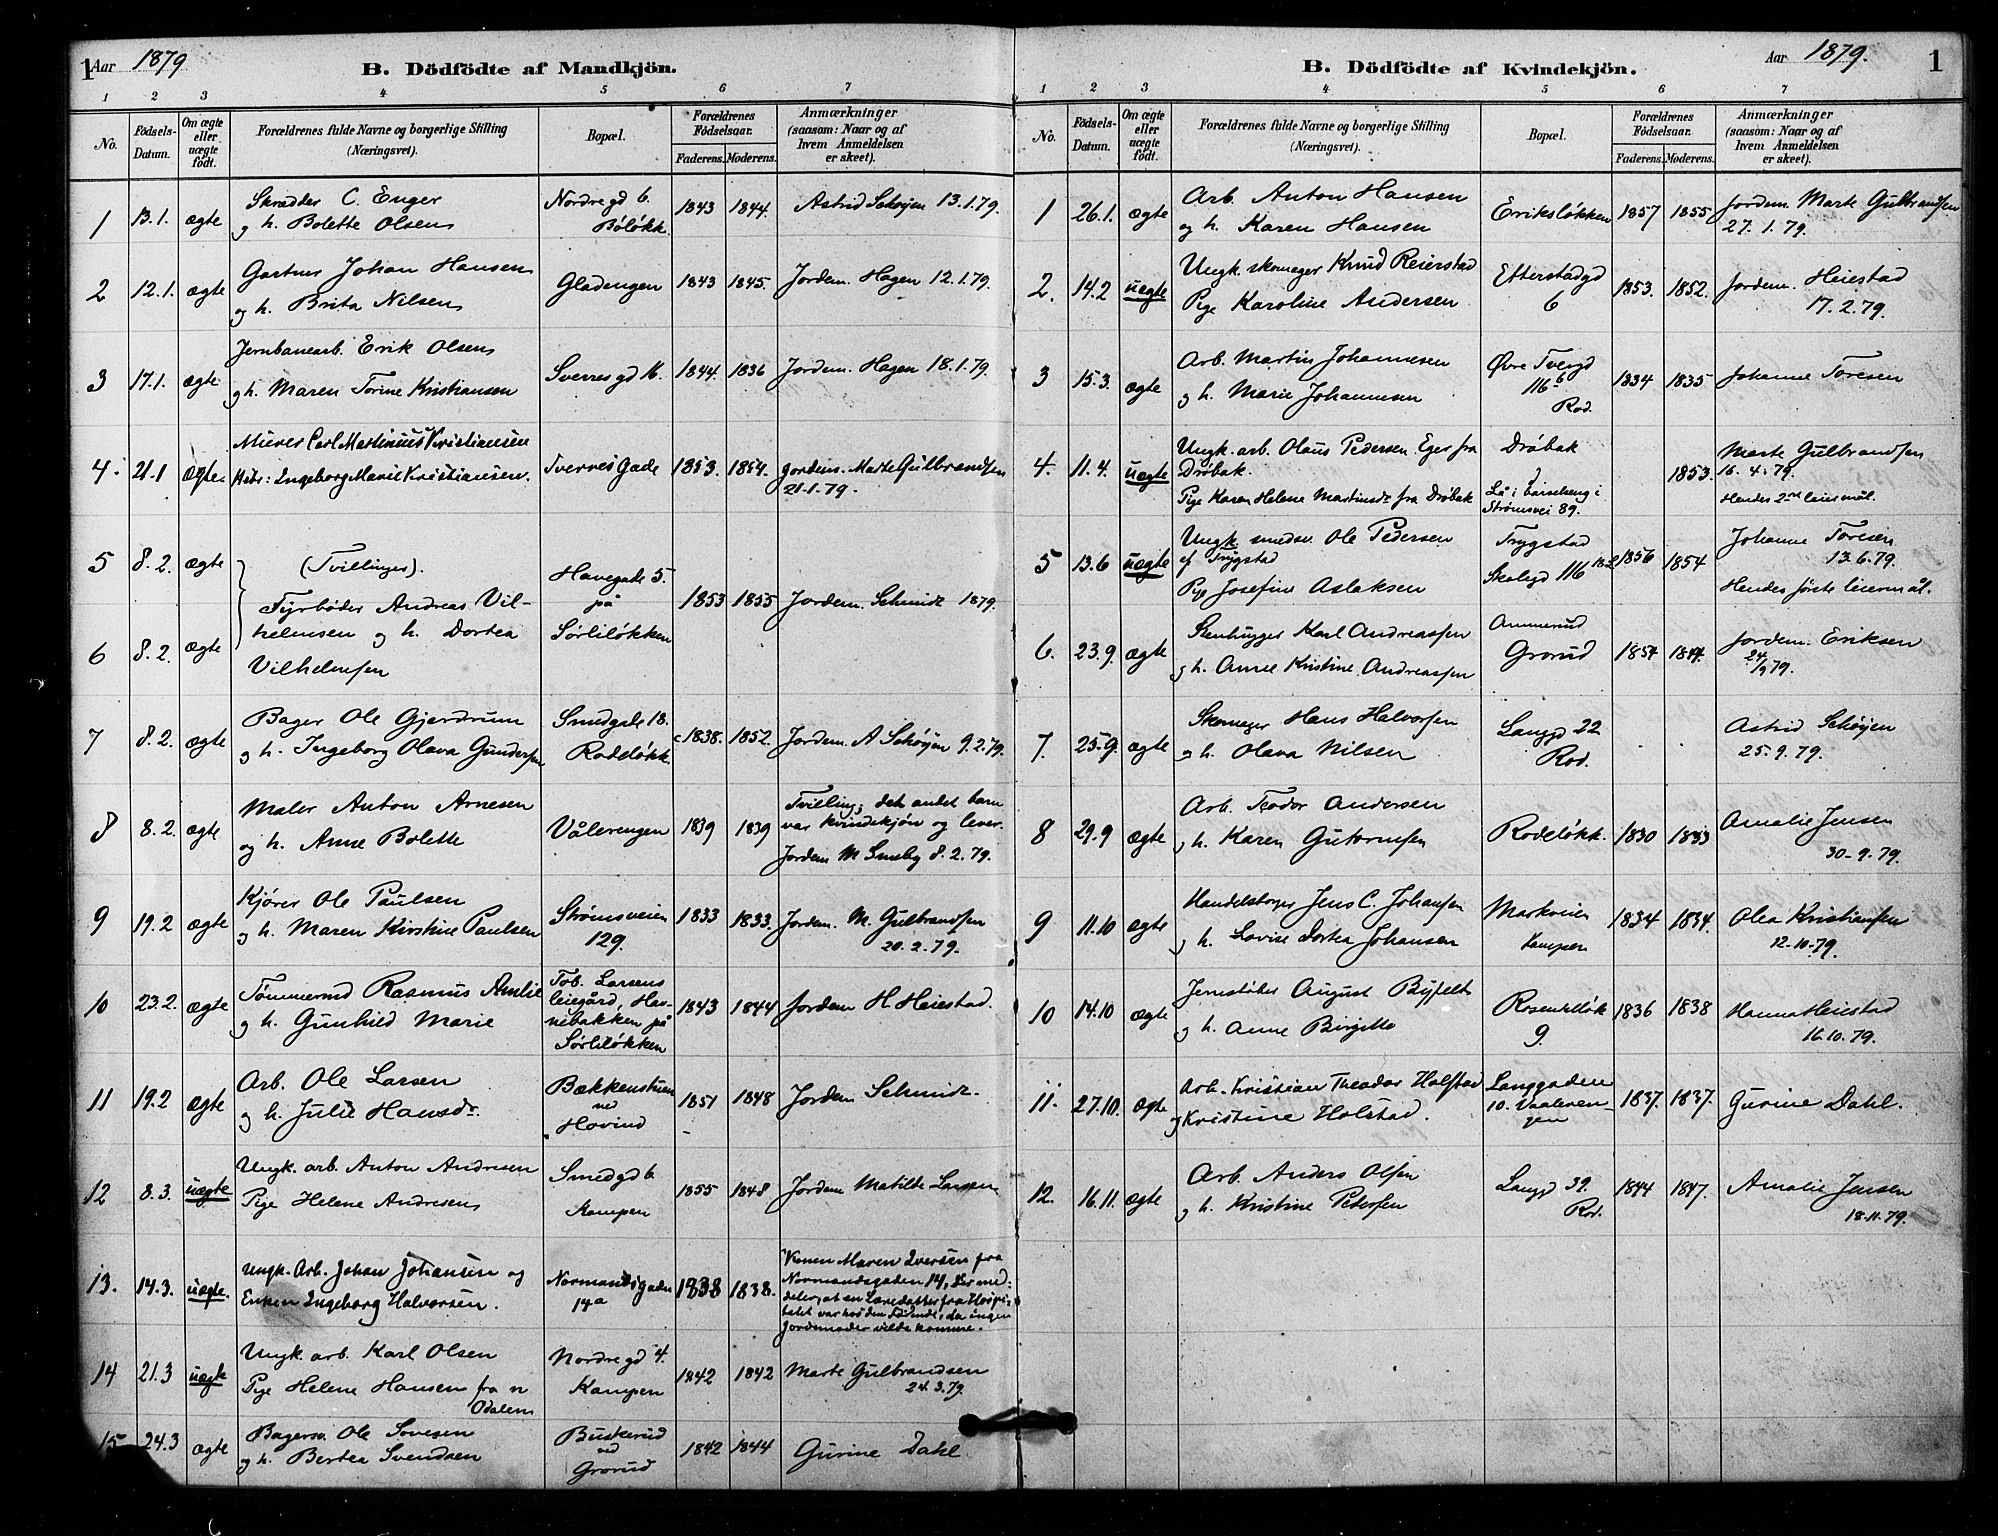 1 Aar 1879
B. Dödfödte af Mandkjön.
1 2 3 4 5 6 7
No.
Födsels-Datum.
Om ægte eller uægte födt.
Forældrenes fulde Navne og borgerlige Stilling (Næringsvei).
Bopæl.
Forældrenes Födselsaar.
Faderens. Moderens.
Anmærkninger (saasom: Naar og af hvem Anmeldelsen er skeet).
1 13.1. ægte Skrædder C. Enger
og h. Bolette Olsen
Nordregd 6.
Böløkk.
1843 1844. Astrid Schøjen 13.1.79.
2 12.1. ægte Gartner Johan Hansen
og h. Brita Nilsen
Gladengen 1843 1845. Jordem. Hagen 12.1.79.
3 17.1. ægte Jernbanearb. Erik Olsen
og h. Maren Torine Kristiansen
Sverresgd 16. 1844. 1836 Jordem. Hagen 18.1.79.
4. 21.1 ægte. Murer Carl Martinius Kristiansen
Hstr: Ingeborg Marie Kristiansen.
Tverres Gade 1853. 1854. Jordem. Marte Gulbrandsen
21.1.79.
5 8.2. ægte (Tvillinger).
Fyrbøder Andreas Vil-
helmsen og h. Dortea
6 8.2. ægte Vilhelmsen
Havegade 5.
på
Sørliløkken
1853 1855 Jordem. Schmidt 1879.
7 8.2. ægte Bager Ole Gjerdrum
og h. Ingeborg Olava Gundersen
Smedgade 18.
Rodeløkk.
c 1838. 1852. Jordem. A Schøjen 9.2.79.
8 8.2. ægte Maler Anton Arnesen
og h. Anne Bolette
Vålerengen 1839 1839
Tvilling; det andet barn
var kvindekjøn og lever.
Jordem M Smeby 8.2.79.
9 19.2 ægte Kjører Ole Paulsen
og h. Maren Kirstine Paulsen
Strømsveien
129.
1833 1833. Jordem. M. Gulbrandsen
20.2.79.
10 23.2. ægte Tømmermd Rasmus Amlie
og h. Gunhild Marie
Tob. Larsens
leiegård, Hav-
nebakken på
Sørliløkken
1843 1844 Jordem H. Heiestad.
11 19.2 ægte Arb. Ole Larsen
og h. Julie Hansdr.
Bækkenstuen
ved
Hovind
1851 1848 Jordem Schmidt.
12 8.3. uægte Ungk. arb. Anton Andresen
Pige Helene Andresen
Smedgd 6
Kampen
1855 1848 Jordem Matilde Larsen
13. 14.3. uægte. Ungk. Arb. Johan Johansen og
Enken Ingeborg Halvorsen.
Normandsgaden
14a
1838 1838.
Konen Maren Iversen fra
Normandsgaden 14, der med-
deler, at en Læredatter fra Hospi-
talet var hos den Fødende, da ingen
Jordemoder vilde komme.
14 21.3 uægte Ungk. arb. Karl Olsen
Pige Helene Hansen fra n
Odalen
Nordregd 4.
Kampen
1842 1842 Marte Gulbrandsen
24.3.79.
15 24.3 ægte Bagersv. Ole Sovesen
og h. Bertea Svendsen
Buskerud
ved
Grorud
1842 1844 Gurine Dahl.
Aar 1879. 1
B. Dödfödte af Kvindekjön.
1 2 3 4 5 6 7
No.
Födsels-Datum.
Om ægte eller uægte födt.
Forældrenes fulde Navne og borgerlige Stilling (Næringsvei).
Bopæl.
Forældrenes Födselsaar.
Faderens. Moderens.
Anmærkninger (saasom: Naar og af hvem Anmeldelsen er skeet).
1 26.1. ægte Arb. Anton Hansen
og h. Karen Hansen
Eriksløkken 1857 1855 Jordem. Marte Gulbrandsen
27.1.79.
2. 14.2 uægte Ungk. skomager Knud Reierstad
Pige Karoline Andersen
Etterstadgd
6
1853. 1852. Jordem. Heiestad
17.2.79.
3 15.3. ægte Arb. Martin Johannesen
og h. Marie Johannesen
Øvre Tvergd
116 b
Rod.
1834 1835 Johanne Toresen
4. 11.4. uægte Ungk. arb. Olaus Pedersen Eger fra
Drøbak.
Pige Karen Helene Martinsdr fra Drøbak
Drøbak
Lå i barselseng i
Strømsvei 89.
1853. Marte Gulbrandsen
16.4.79.
Hendes 2det leiermål.
5 13.6 uægte Ungk. smedsv. Ole Pedersen
af Trygstad
Pige Josefine Aslaksen
Trygstad
Skolegd 116
1856 1854 Johanne Toresen
13.6.79.
Hendes første leiermål.
6. 23.9. ægte Stenhugger Karl Andreassen
og h. Anne Kristine Andreassen
Ammerud
Grorud
1854 1844. Jordem. Eriksen
24/9 79.
7. 25.9. ægte Skomager Hans Halvorsen
og h. Olava Nilsen
Langgd 22
Rod.
Astrid Schøjen
25.9.79.
8 29.9 ægte Arb. Teodor Andersen
og h. Karen Gutormsen
Rodeløkk. 1830 1833 Amalie Jensen
30.9.79.
9 11.10 ægte Handelsborger Jens C. Johansen
og h. Lovise Dortea Johansen
Markveien
Kampen
1834 1834. Olea Kristiansen
12.10.79.
10 14.10 ægte Jernstøber August Byfelt
og h. Anne Birgitte
Rosenliløk
9.
1836 1838 Hanna Heiestad
16.10.79.
11. 27.10. ægte Arb. Kristian Theodor Holstad
og Kristine Holstad.
Langgaden
10. Vaaleren-
gen
1837. 1837. Gurine Dahl.
12. 16.11. ægte Arb. Anders Olsen
og h. Kristine Petersen
Langgd 39
Rod.
1844 1847. Amalie Jensen
18.11.79.